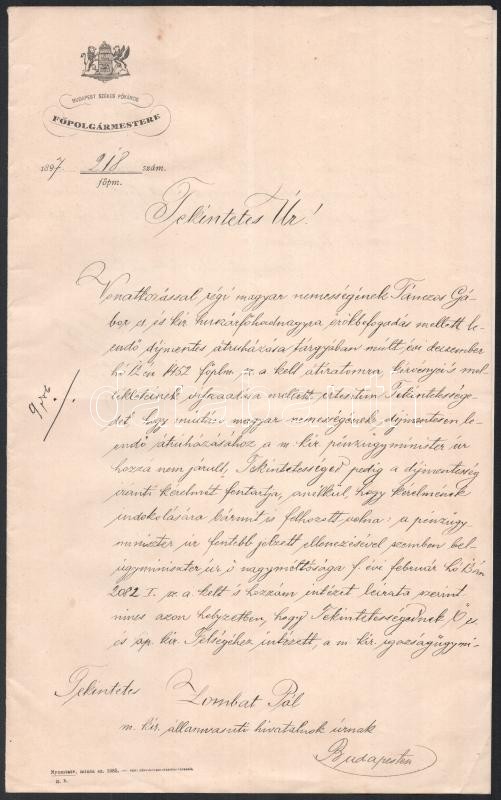 BUDAPEST SZÉKES FŐVÁROS
FŐPOLGÁRMESTERE
1897 218 szám.
főpm.
Tekintetes Úr!
Vonatkozással régi magyar nemességének Tánczos Gá-
bor cs. és kir. huszárfőhadnagyra örökbefogadás mellett le-
endő díjmentes átruházása tárgyában múlt évi deczember
hó 12-én 1452 főplm. sz. a. kelt átiratomra, kérvényei s mel-
lékleteinek visszaadása mellett értesítem Tekintetessége-
det, hogy miután magyar nemességének díjmentesen le-
endő átruházásához a m. kir. pénzügyminister úr
hozzá nem járult, Tekintetességed pedig a díjmentesség
iránti kérelmét fentartja, anélkül, hogy kérelmének
indokolására bármit is felhozott volna: a pénzügy-
miniszter úr fentebb jelzett ellenezésével szemben bel-
ügyminiszter úr ő nagyméltósága f. évi február hó 13-án
2082 I. sz. a. kelt s hozzám intézett leirata szerint
nincs azon helyzetben, hogy Tekintetességednek Ő cs.
és ap. kir. Felségéhez intézett, a m. kir. igazságügymi-
Tekintetes Zombat Pál
m. kir. államvasuti hivatalnok úrnak
Budapesten